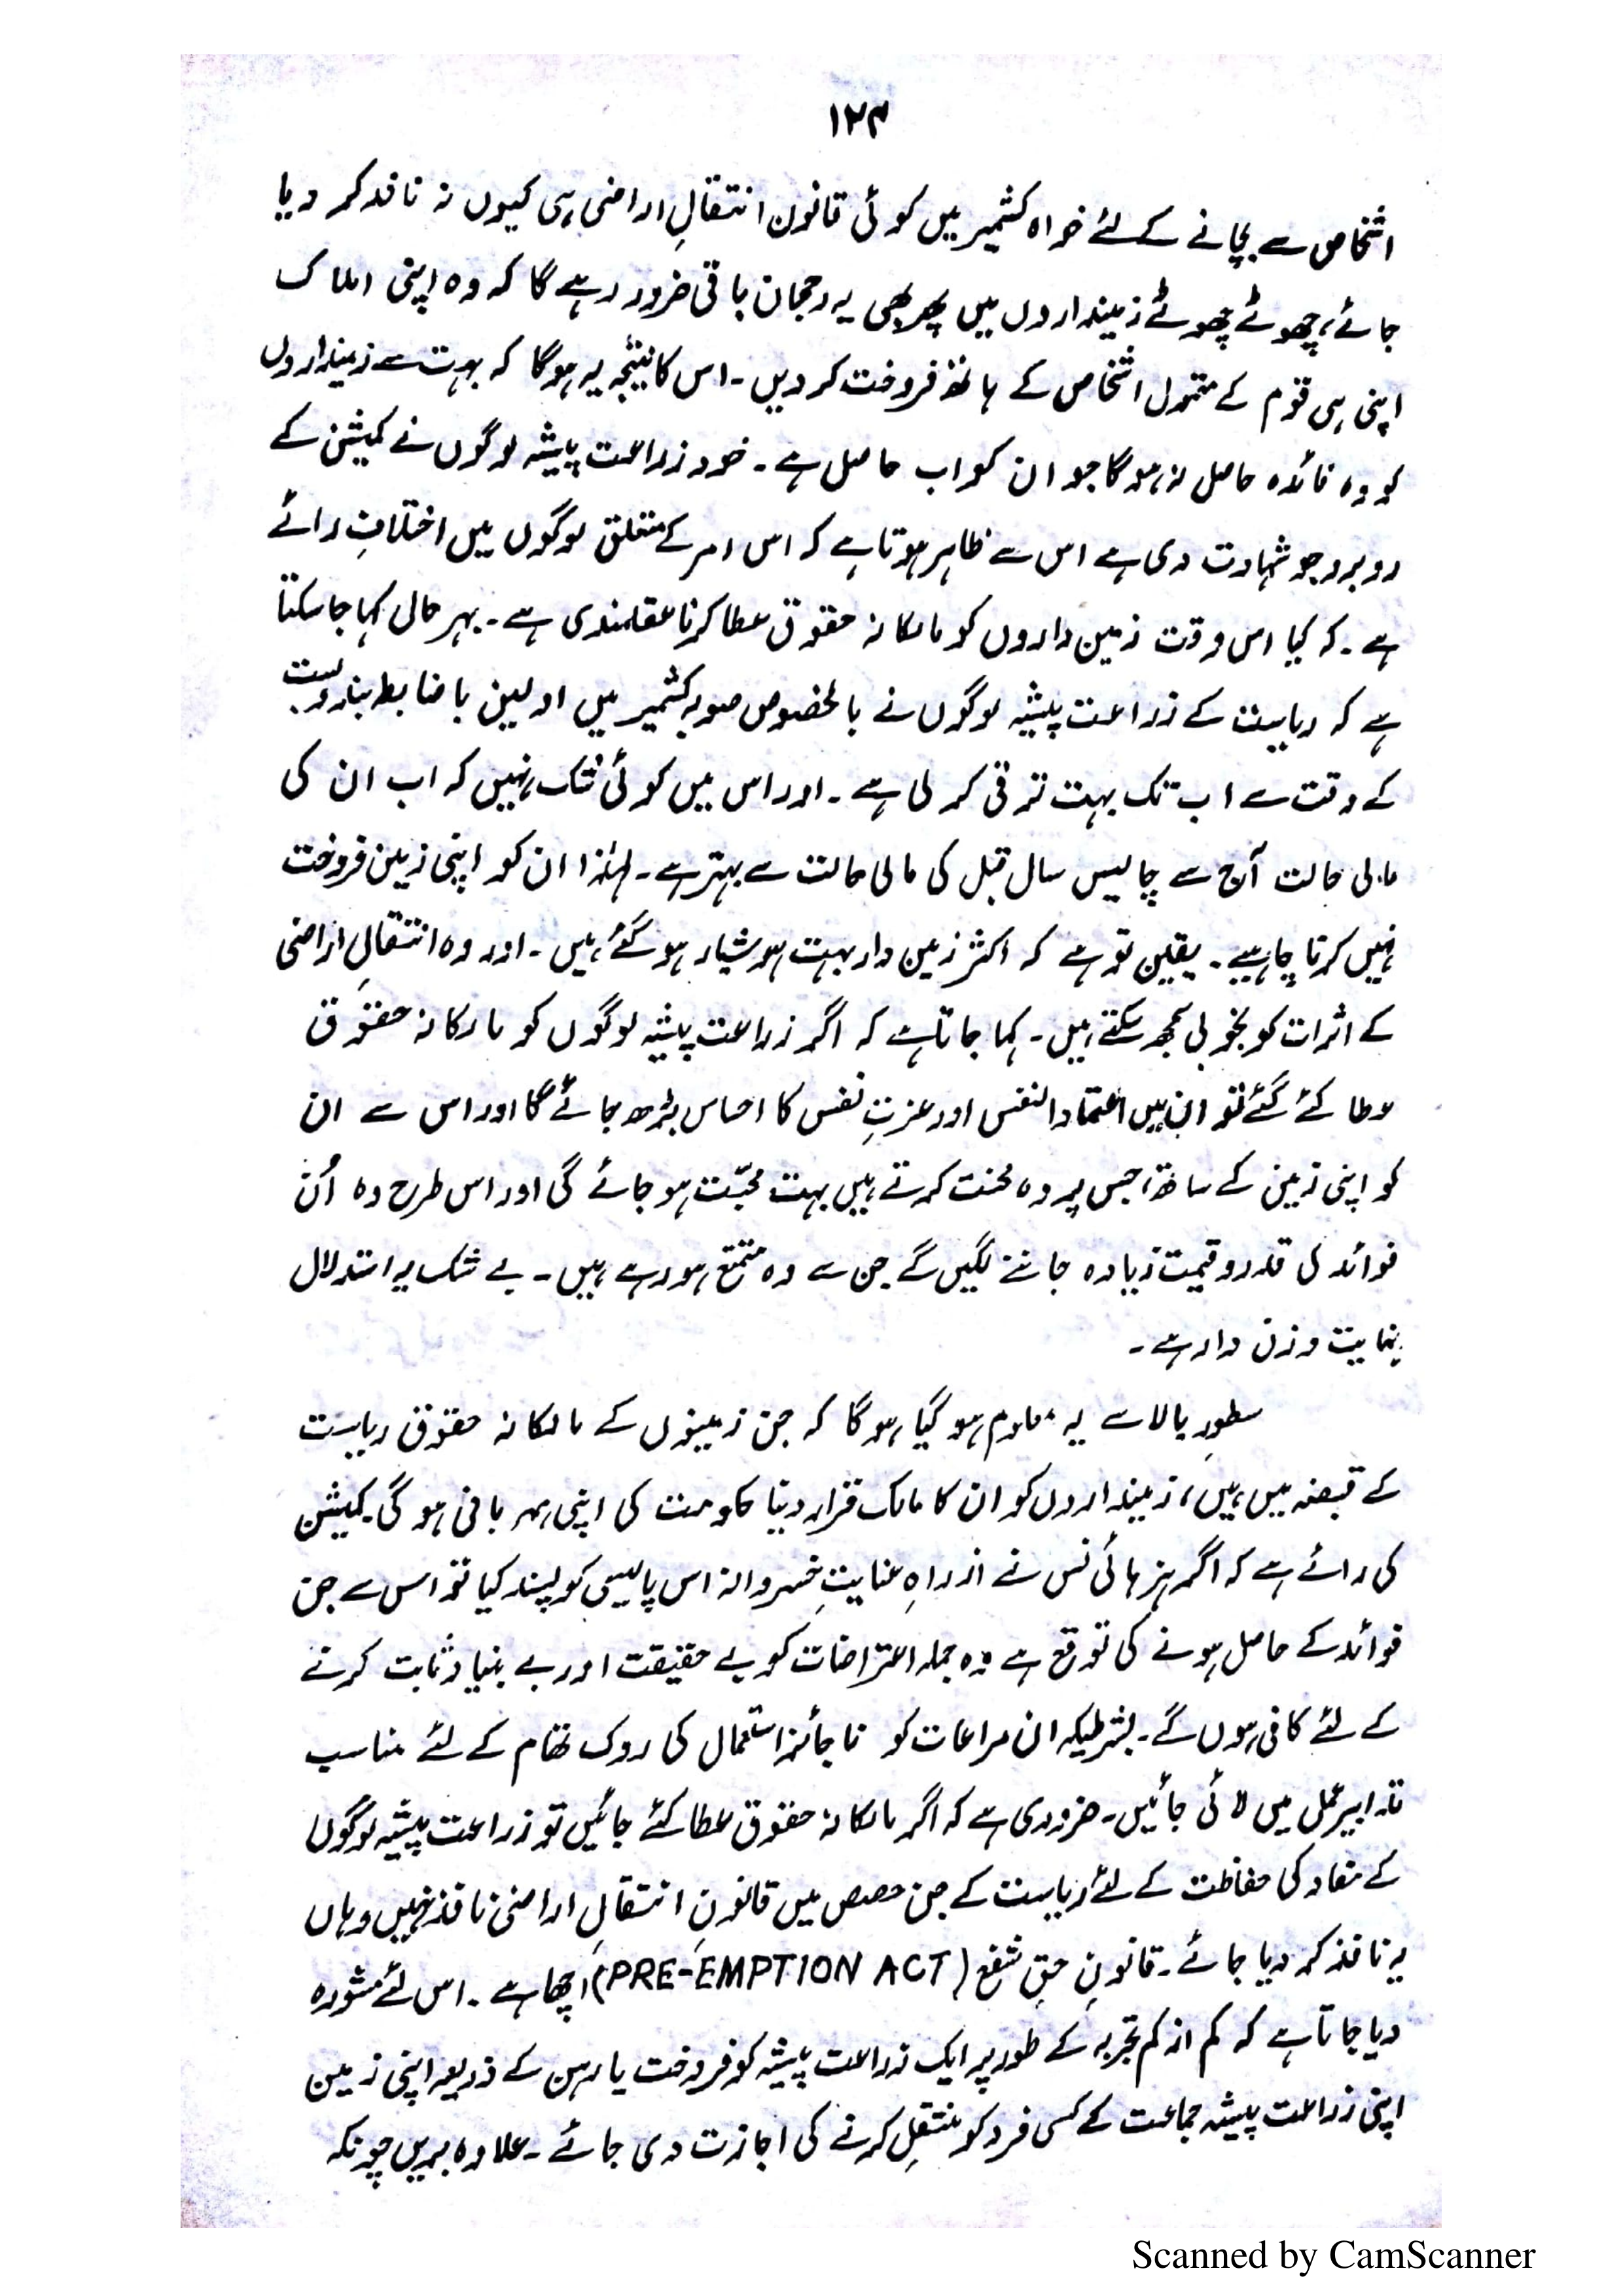 ۱۲۳
اشخاص سے بچانے کے لئے خواہ کشمیر میں کوئی قانون انتقالِ اراضی ہی کیوں نہ نافذ کر دیا
جائے، چھوٹے چھوٹے زمینداروں میں پھر بھی یہ رجحان باقی ضرور رہے گا کہ وہ اپنی املاک
اپنی ہی قوم کے متمول اشخاص کے ہاتھ فروخت کر دیں۔ اس کا نتیجہ یہ ہوگا کہ بہت سے زمینداروں
کو وہ فائدہ حاصل نہ ہوگا جو ان کو اب حاصل ہے۔ خود زراعت پیشہ لوگوں نے کمیشن کے
روبرو جو شہادت دی ہے اس سے ظاہر ہوتا ہے کہ اس امر کے متعلق لوگوں میں اختلافِ رائے
ہے۔ کہ کیا اس وقت زمین داروں کو مالکانہ حقوق عطا کرنا عقلمندی ہے۔ بہر حال کہا جا سکتا
ہے کہ ریاست کے زراعت پیشہ لوگوں نے بالخصوص صوبہ کشمیر میں اولین باضابطہ بندوبست
کے وقت سے اب تک بہت ترقی کر لی ہے۔ اور اس میں کوئی شک نہیں کہ اب ان کی
مالی حالت آج سے چالیس سال قبل کی مالی حالت سے بہتر ہے۔ لہٰذا ان کو اپنی زمین فروخت
نہیں کرنا چاہیے۔ یقین تو ہے کہ اکثر زمین دار بہت ہوشیار ہو گئے ہیں۔ اور وہ انتقالِ اراضی
کے اثرات کو بخوبی سمجھ سکتے ہیں۔ کہا جاتا ہے کہ اگر زراعت پیشہ لوگوں کو مالکانہ حقوق
عطا کئے گئے تو ان میں اعتماد النفس اور عزتِ نفس کا احساس بڑھ جائے گا اور اس سے ان
کو اپنی زمین کے ساتھ، جس پر وہ محنت کرتے ہیں بہت محبّت ہو جائے گی اور اس طرح وہ اُن
فوائد کی قدر و قیمت زیادہ جاننے لگیں گے جن سے وہ متمتع ہو رہے ہیں۔ بے شک یہ استدلال
نہایت وزن دار ہے۔
سطورِ بالا سے یہ معلوم ہو گیا ہوگا کہ جن زمینوں کے مالکانہ حقوق ریاست
کے قبضہ میں ہیں، زمینداروں کو ان کا مالک قرار دینا حکومت کی اپنی مہربانی ہو گی۔ کمیشن
کی رائے ہے کہ اگر ہز ہائی نس نے از راہِ عنایتِ خسروانہ اس پالیسی کو پسند کیا تو اس سے جن
فوائد کے حاصل ہونے کی توقع ہے وہ جملہ اعتراضات کو بے حقیقت اور بے بنیاد ثابت کرنے
کے لئے کافی ہوں گے۔ بشرطیکہ ان مراعات کو ناجائز استعمال کی روک تھام کے لئے مناسب
تدابیر عمل میں لائی جائیں۔ ضروری ہے کہ اگر مالکانہ حقوق عطا کئے جائیں تو زراعت پیشہ لوگوں
کے مفاد کی حفاظت کے لئے ریاست کے جن حصص میں قانونِ انتقالِ اراضی نافذ نہیں وہاں
یہ نافذ کر دیا جائے۔ قانونِ حقِ شفع (PRE-EMPTION ACT) اچھا ہے۔ اس لئے مشورہ
دیا جاتا ہے کہ کم از کم تجربہ کے طور پر ایک زراعت پیشہ کو فروخت یا رہن کے ذریعہ اپنی زمین
اپنی زراعت پیشہ جماعت کے کسی فرد کو منتقل کرنے کی اجازت دی جائے۔ علاوہ بریں چونکہ
Scanned by CamScanner